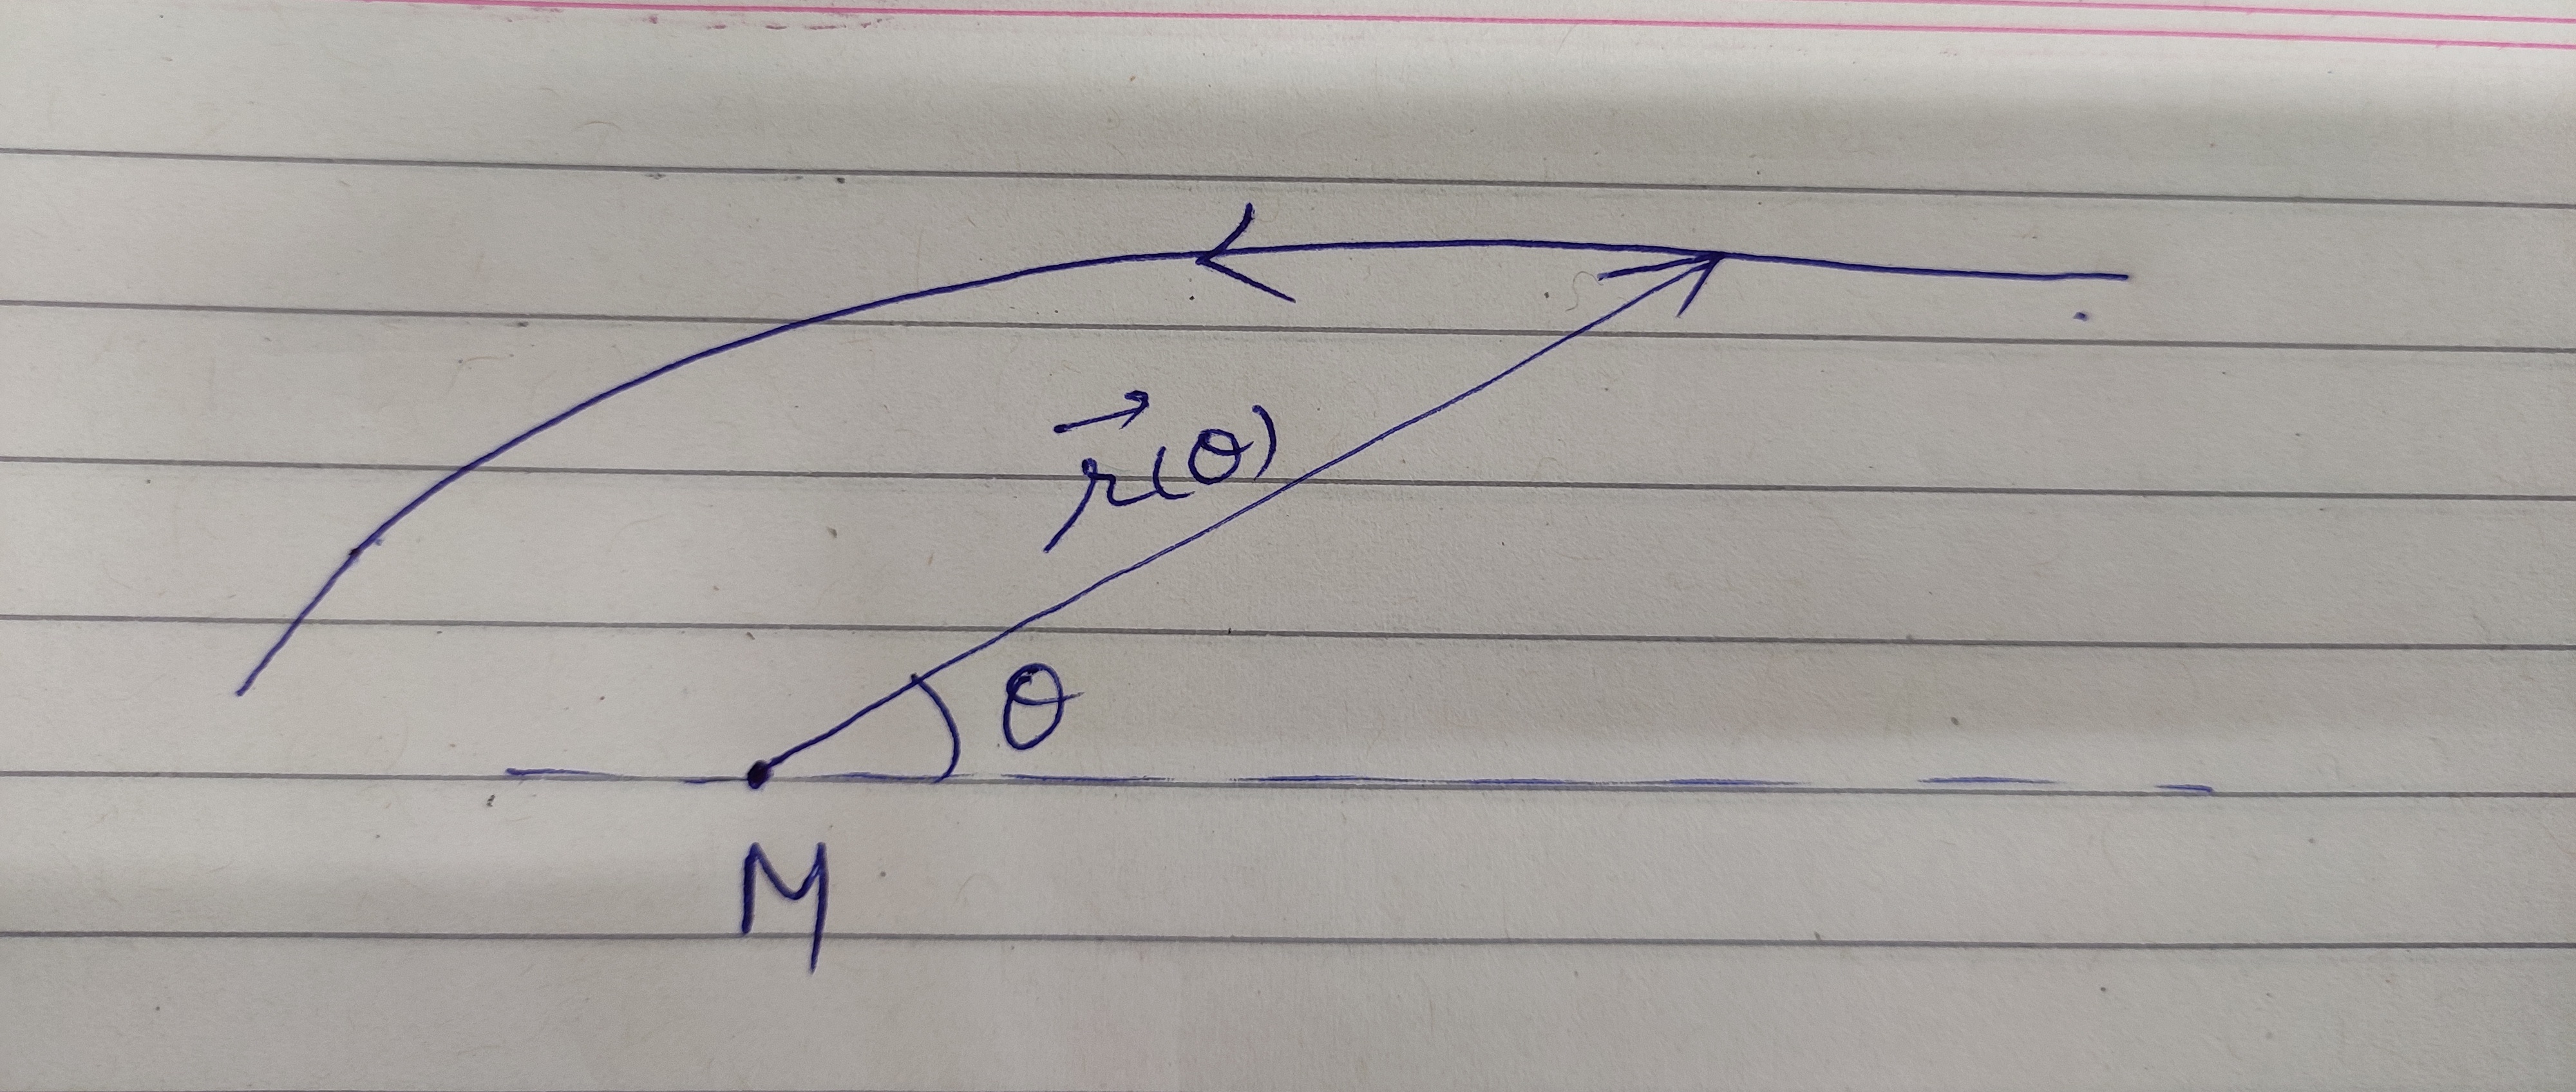 r⃗(θ)
θ
M